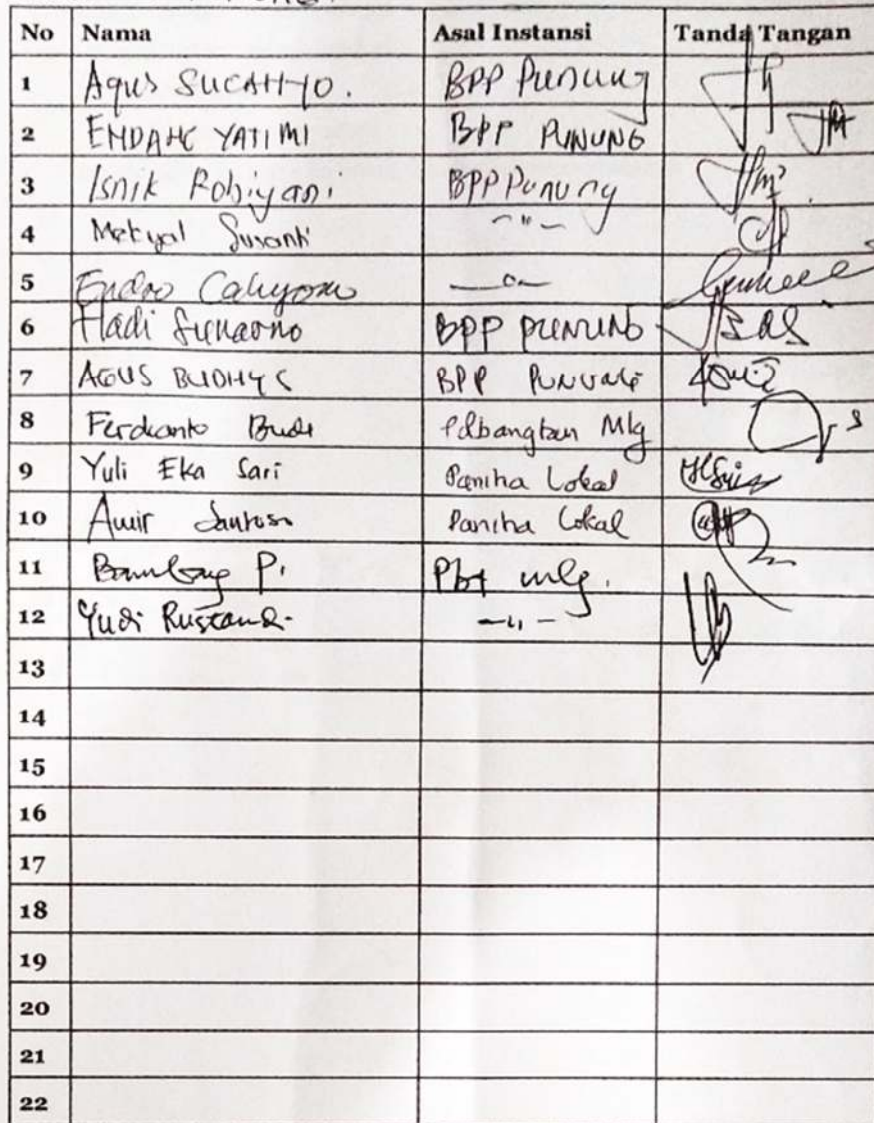 No Nama Asal Instansi Tanda Tangan
1 Agus SUCAHYO. BPP Punung
2 ENDANG YATIMI BPP PUNUNG
3 Isnik Robiyani BPP Punung
4 Metyal Susanti — " —
5 Endro Cahyono — " —
6 Hadi Sunarno BPP PUNUNG
7 AGUS BUDHY S BPP PUNUNG
8 Ferdianto Budi Polbangtan Mlg
9 Yuli Eka Sari Panitia Lokal
10 Amir Santoso Panitia Lokal
11 Bambang P. Pbt mlg.
12 Yudi Rustandi — " —
13
14
15
16
17
18
19
20
21
22